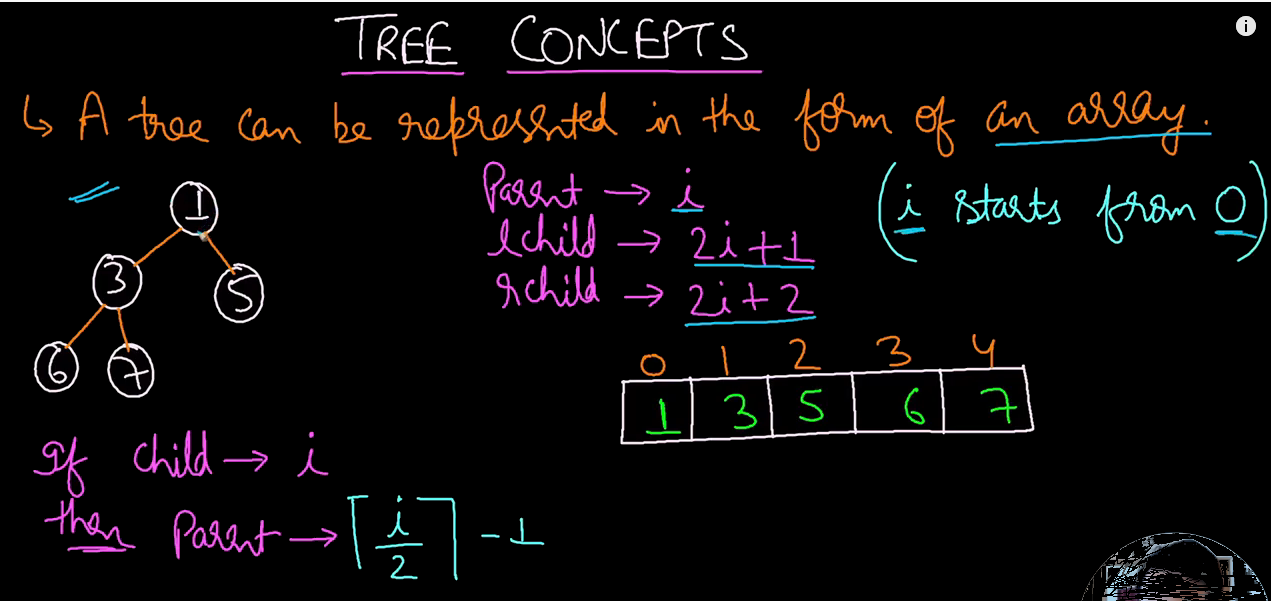 TREE CONCEPTS
↳ A tree can be represented in the form of an array.
Parent → i
(i starts from 0)
lchild → 2i+1
rchild → 2i+2
1
3
5
6
7
0 1 2 3 4
1 3 5 6 7
If child → i
then Parent → ⌈i/2⌉ - 1